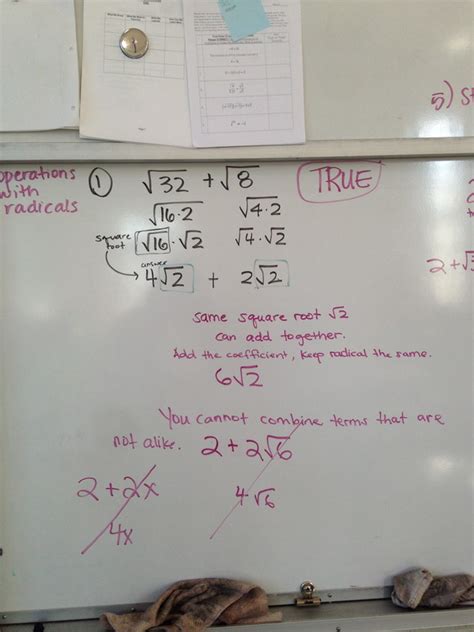 5) St
operations
with
radicals
① √32 + √8
TRUE
√16·2 √4·2
square
root
√16·√2 √4·√2
answer
4√2 + 2√2
2+√3
same square root √2
can add together.
Add the coefficient, keep radical the same.
6√2
You cannot combine terms that are
not alike. 2+2√6
2+2x
4√6
4x